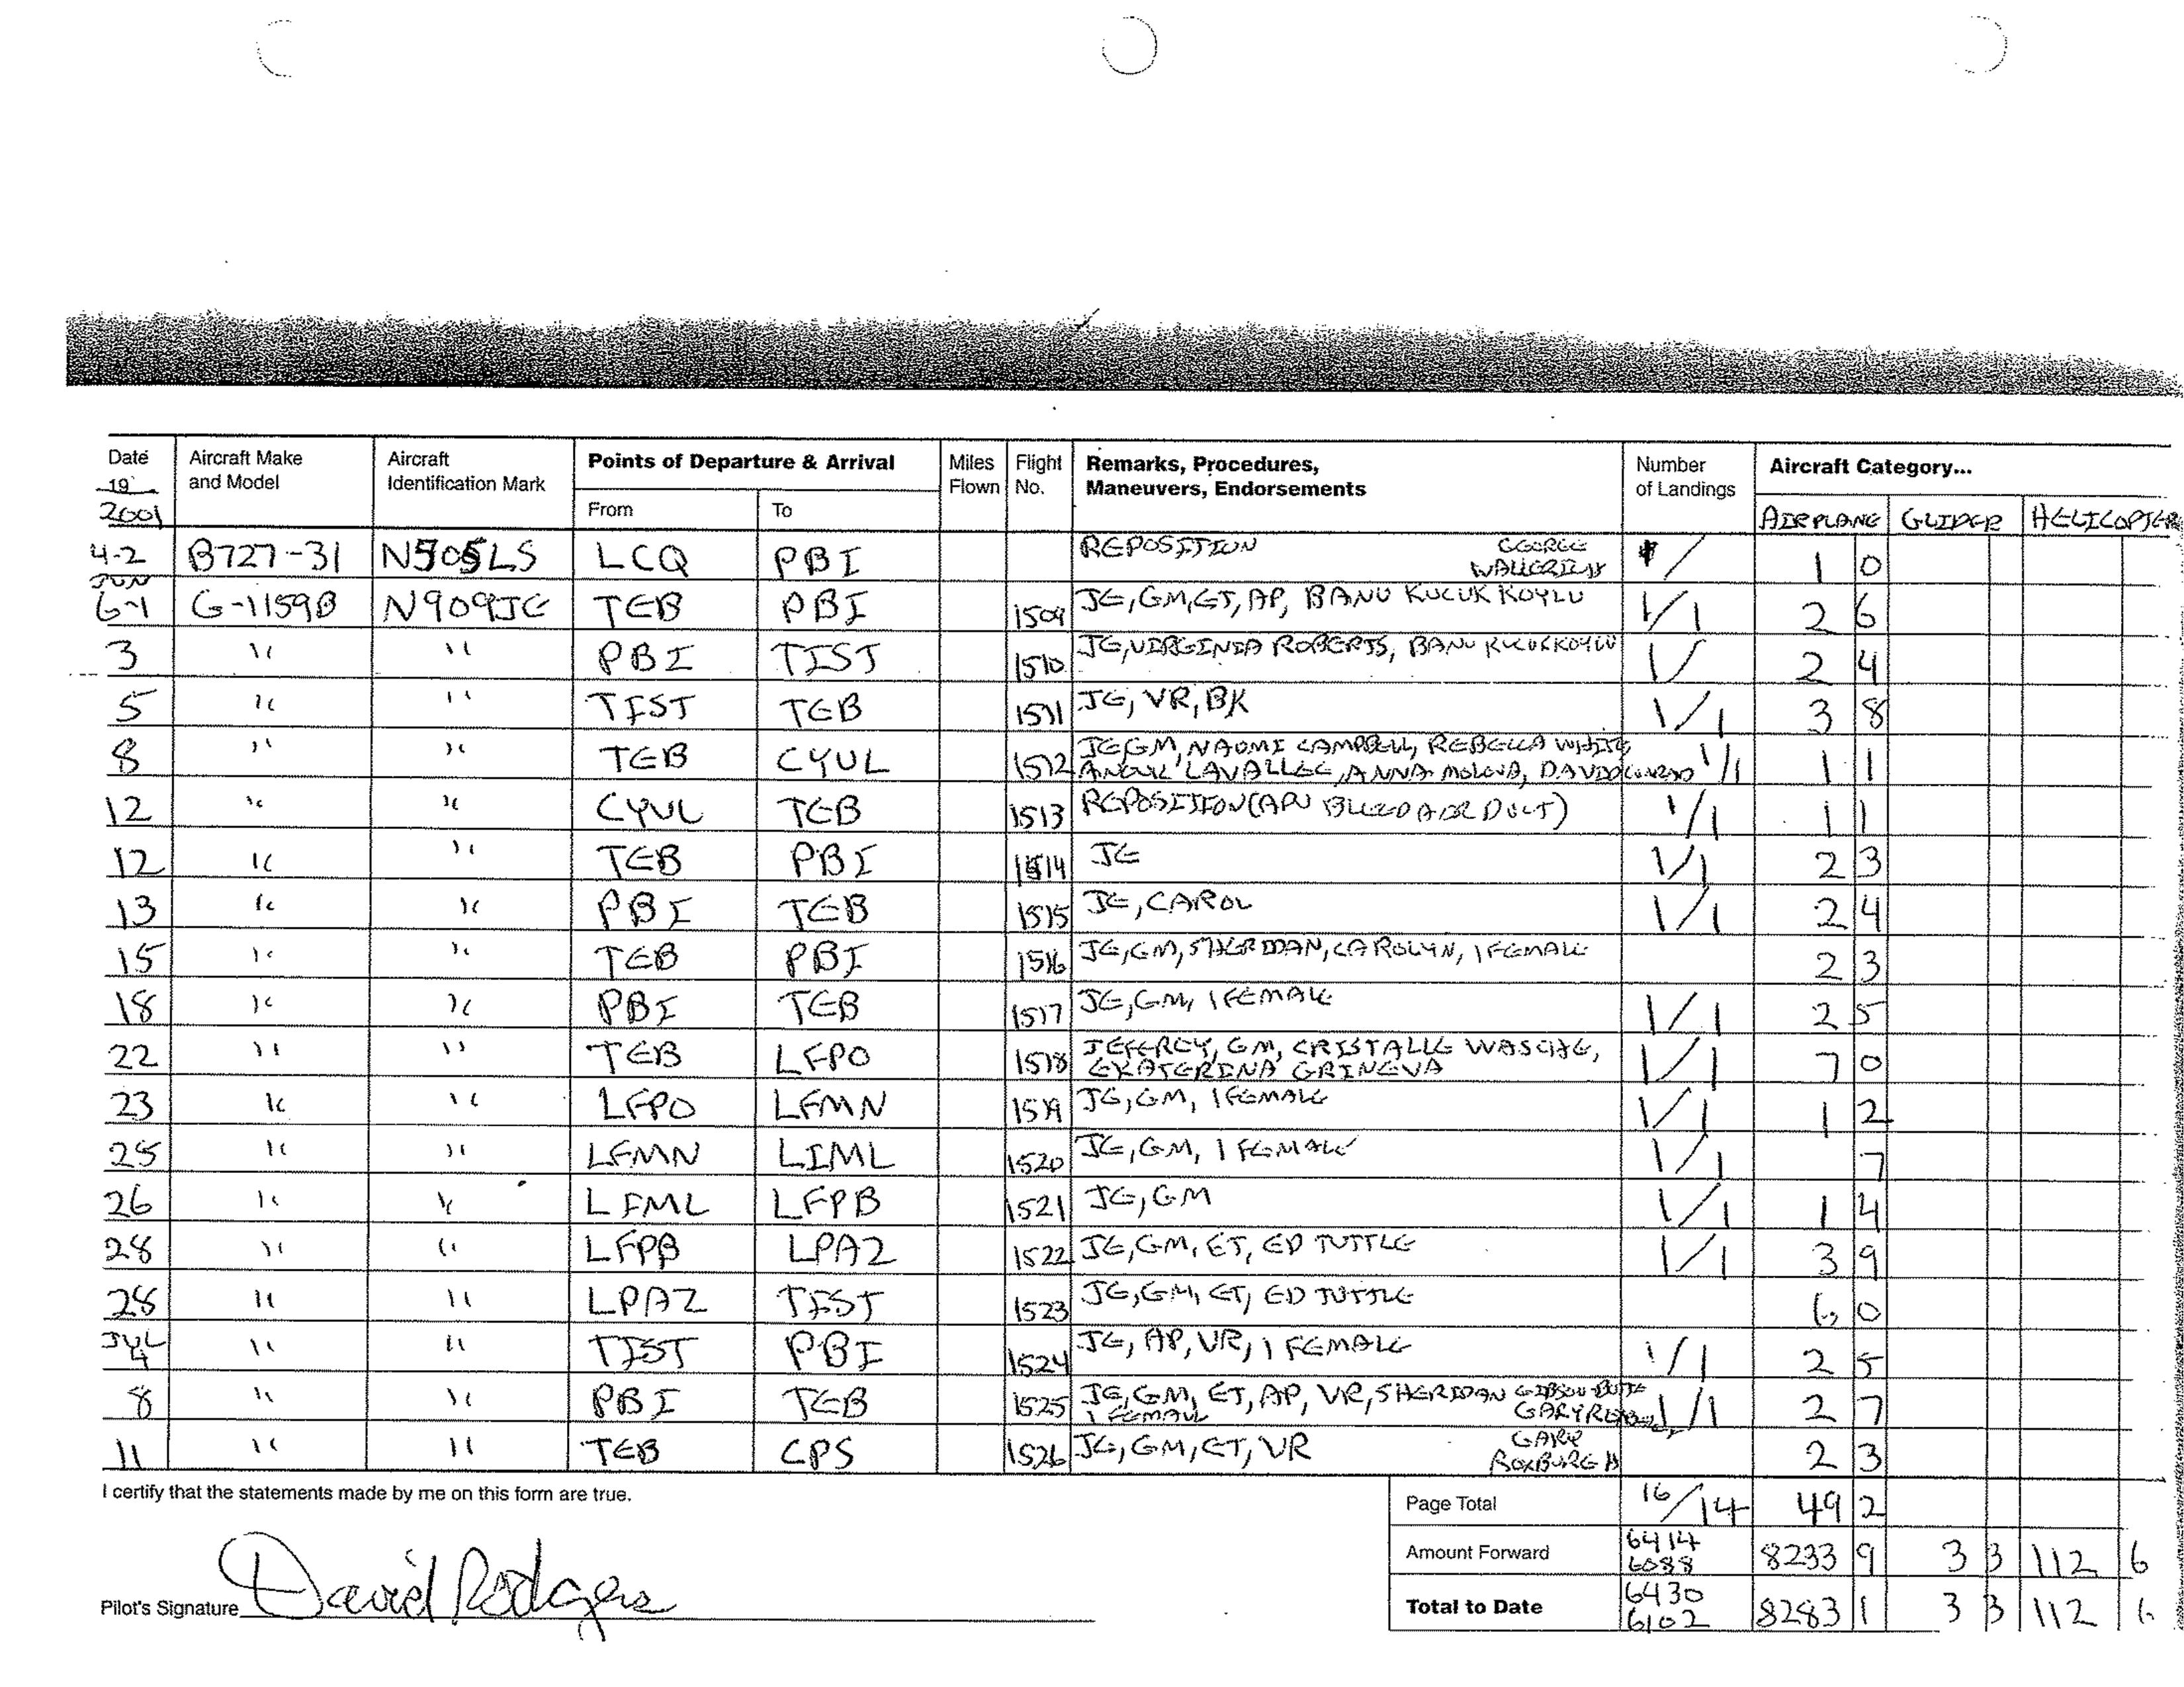 Date Aircraft Make Aircraft Points of Departure & Arrival Miles Flight Remarks, Procedures, Number Aircraft Category...
19 and Model Identification Mark Flown No. Maneuvers, Endorsements of Landings
2001 From To AIRPLANE GLIDER HELICOPTER
4-2 B727-31 N505LS LCQ PBI REPOSITION GEORGE / 1 0
JUN
6-1 G-1159B N909JE TEB PBI 1509 JE, GM, ET, AP, BANU KUCUKKOYLU 1/1 2 6
3 " " PBI TIST 1510 JE, VIRGINIA ROBERTS, BANU KUCUKKOYLU 1/ 2 4
5 " " TIST TEB 1511 JE, VR, BK 1/1 3 8
8 " " TEB CYUL 1512 JE, GM, NAOMI CAMPBELL, REBECCA WHITE, 1/1 1 1
LAVALLEE, ANNA MOLOVA, DAVID
12 " " CYUL TEB 1513 REPOSITION (APU BLEED AIR DUCT) 1/1 1 1
12 " " TEB PBI 1514 JE 1/1 2 3
13 " " PBI TEB 1515 JE, CAROL 1/1 2 4
15 " " TEB PBI 1516 JE, GM, SHERIDAN, CAROLYN, 1 FEMALE 2 3
18 " " PBI TEB 1517 JE, GM, 1 FEMALE 1/1 2 5
22 " " TEB LFPO 1518 JEFFREY, GM, CRISTALLE WASCHE, 1/1 7 0
EKATERINA GRINEVA
23 " " LFPO LFMN 1519 JE, GM, 1 FEMALE 1/1 1 2
25 " " LFMN LIML 1520 JE, GM, 1 FEMALE 1/1 7
26 " " LIML LFPB 1521 JE, GM 1/1 1 4
28 " " LFPB LPAZ 1522 JE, GM, ET, ED TUTTLE 1/1 3 9
28 " " LPAZ TIST 1523 JE, GM, ET, ED TUTTLE 6 0
JUL
4 " " TIST PBI 1524 JE, AP, VR, 1 FEMALE 1/1 2 5
8 " " PBI TEB 1525 JE, GM, ET, AP, VR, SHERIDAN GIBSON-BUTTE 1/1 2 7
1 FEMALE GARY
11 " " TEB CPS 1526 JE, GM, ET, VR GARY ROXBURGH 2 3
I certify that the statements made by me on this form are true.
Page Total 16/14 49 2
Amount Forward 6414 6088 8233 9 3 3 112 6
Pilot's Signature David Rodgers
Total to Date 6430 6102 8283 1 3 3 112 6